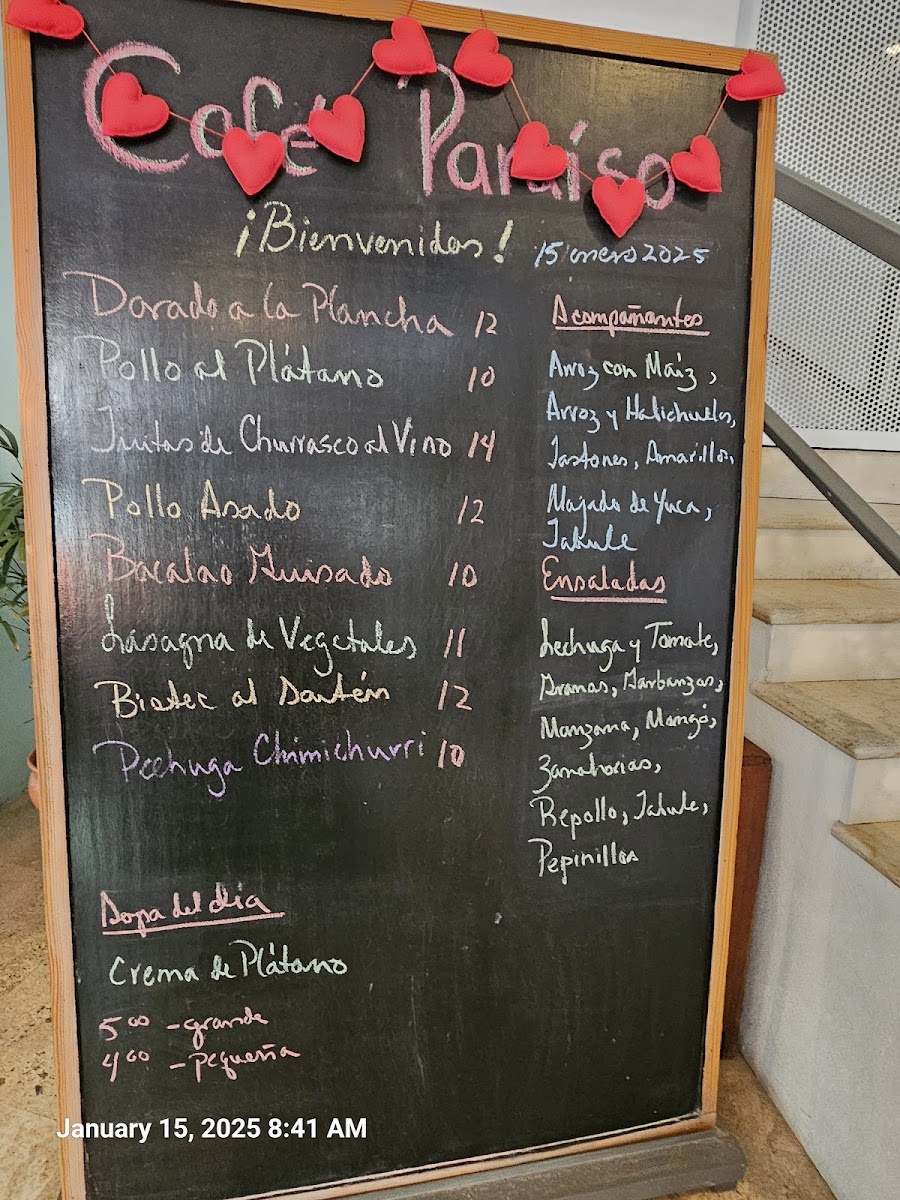 Café Paraíso
¡Bienvenidos!
15 enero 2025
Dorado a la Plancha 12
Pollo al Plátano 10
Tiritas de Churrasco al Vino 14
Pollo Asado 12
Bacalao Guisado 10
Lasagna de Vegetales 11
Bistec al Sartén 12
Pechuga Chimichurri 10
Sopa del día
Crema de Plátano
5.00 - grande
4.00 - pequeña
Acompañantes
Arroz con Maíz,
Arroz y Habichuelas,
Tostones, Amarillos,
Majado de Yuca,
Tabule
Ensaladas
Lechuga y Tomate,
Granos, Garbanzos,
Manzana, Mangó,
Zanahorias,
Repollo, Tabule,
Pepinillos
January 15, 2025 8:41 AM